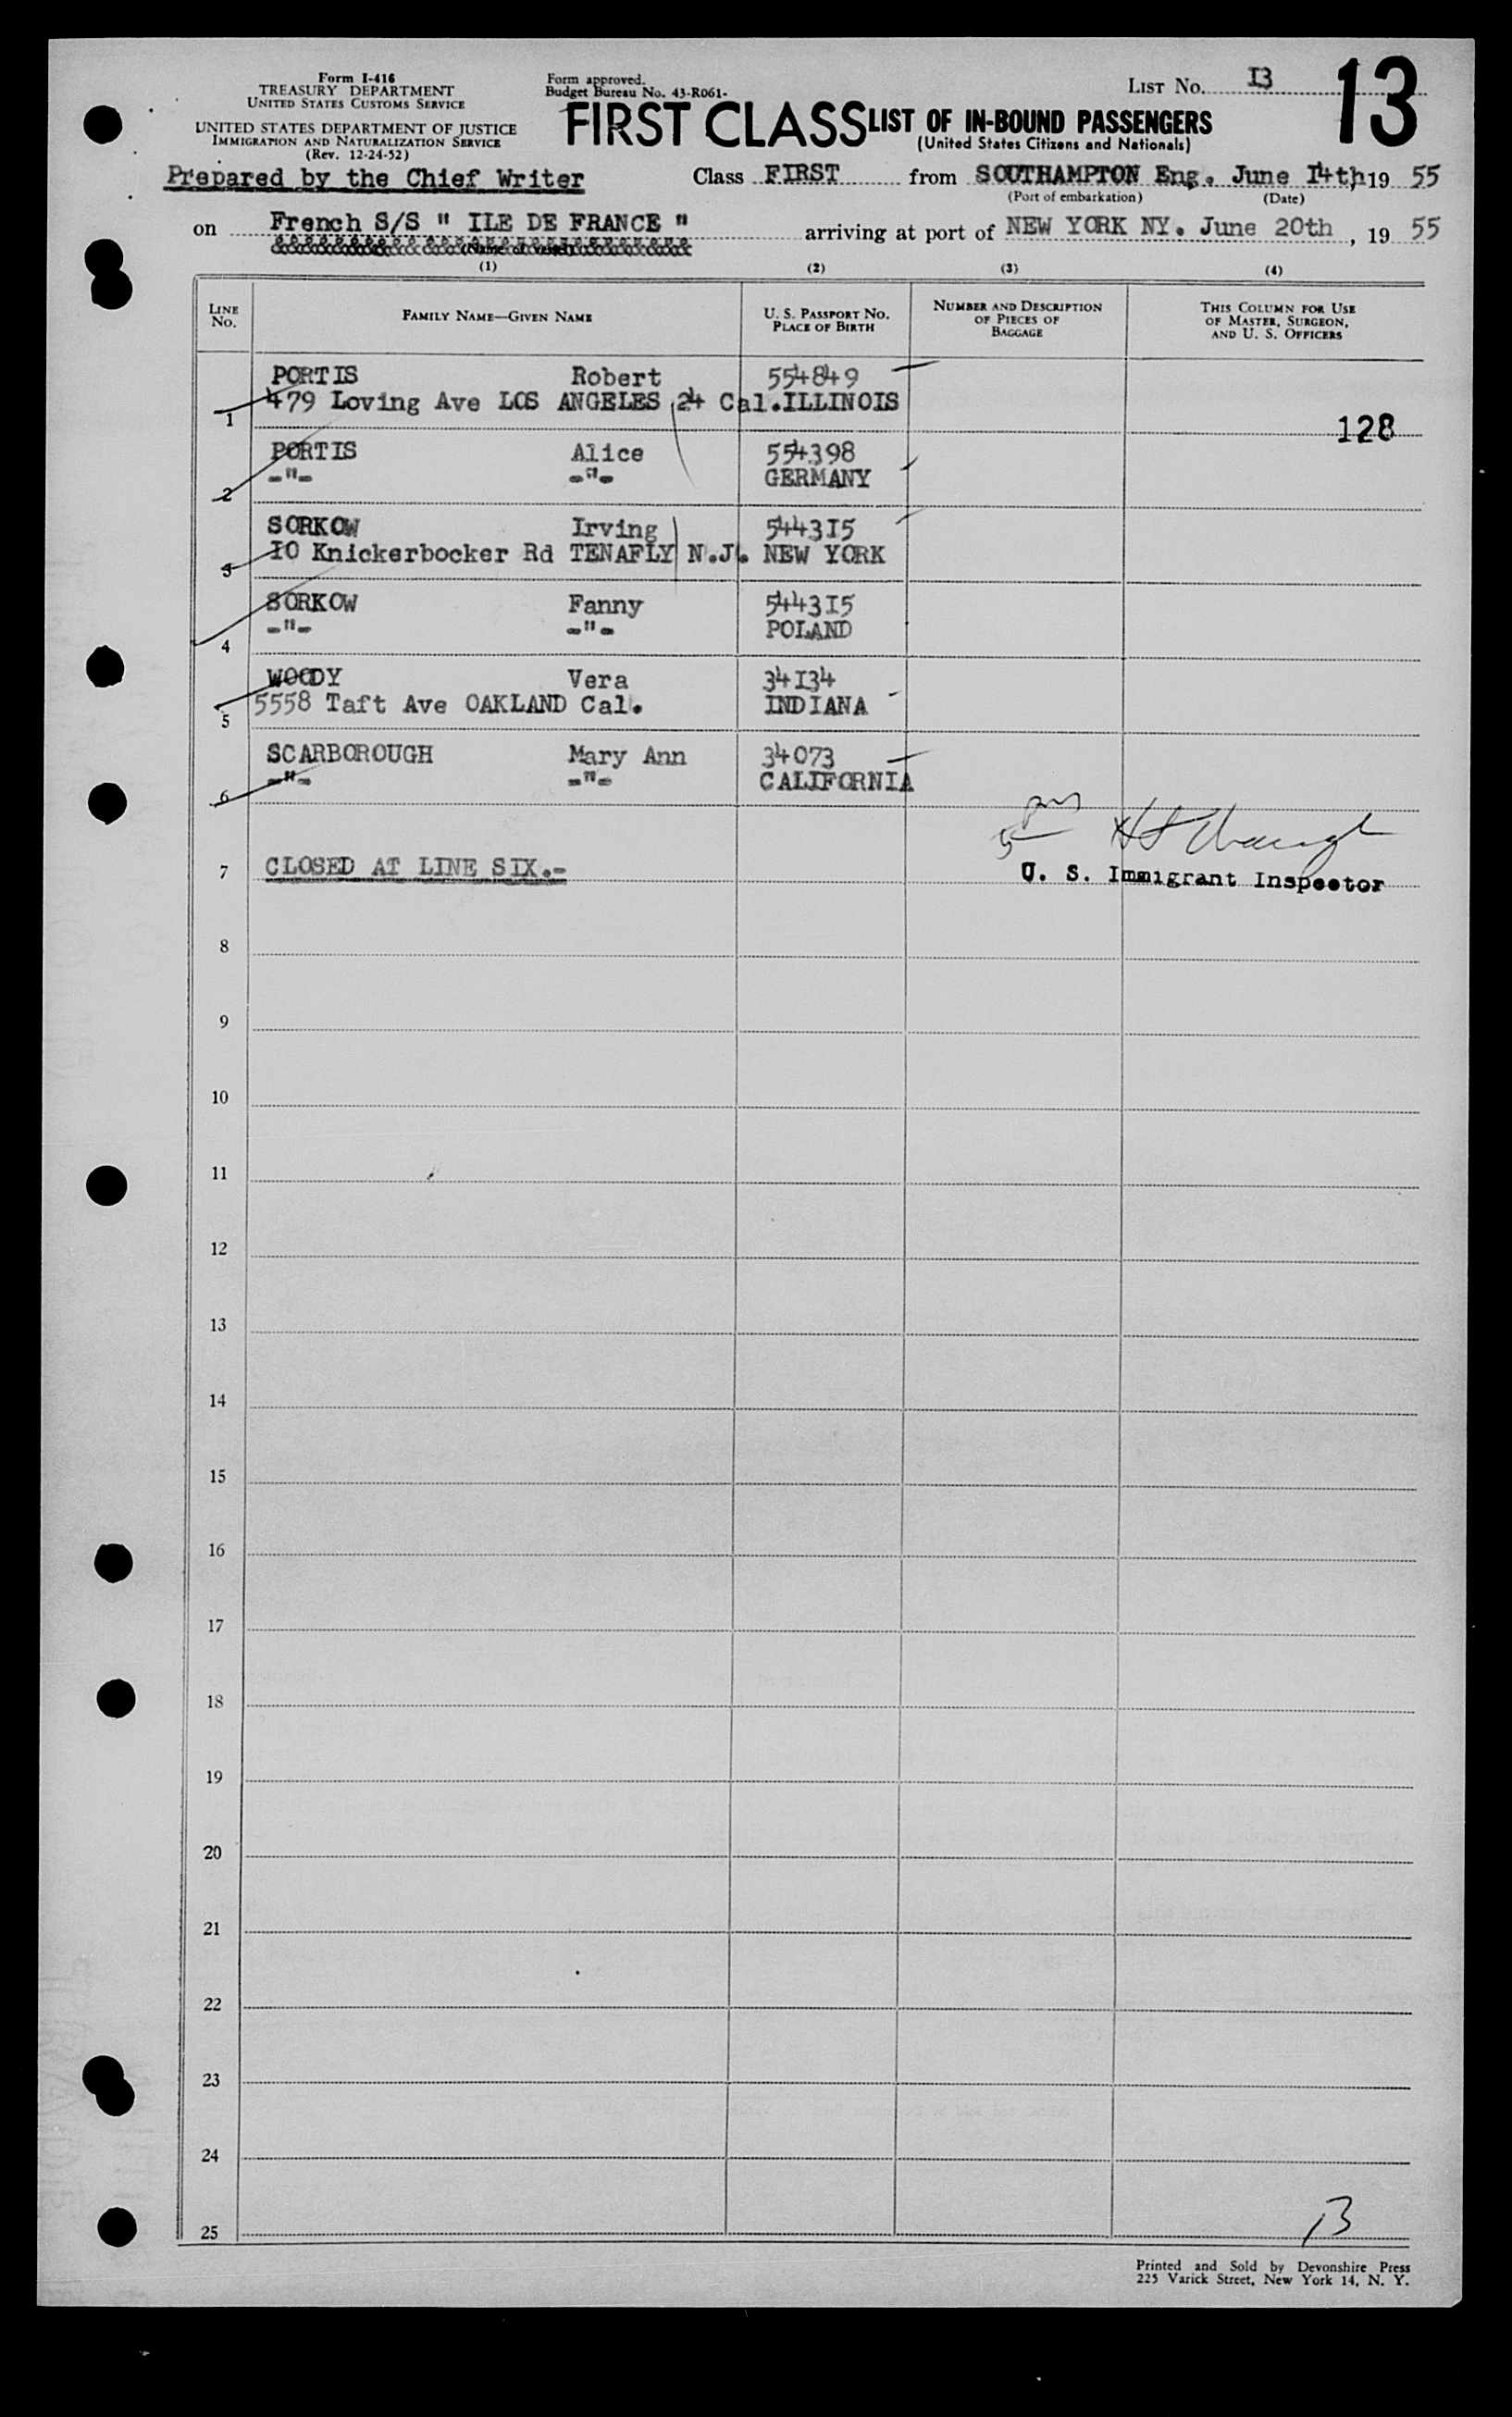 Form I-416
TREASURY DEPARTMENT
UNITED STATES CUSTOMS SERVICE
UNITED STATES DEPARTMENT OF JUSTICE
IMMIGRATION AND NATURALIZATION SERVICE
(Rev. 12-24-52)
Form approved.
Budget Bureau No. 43-R061-
LIST No. I3
13
FIRST CLASS LIST OF IN-BOUND PASSENGERS
(United States Citizens and Nationals)
Prepared by the Chief Writer
Class FIRST from SOUTHAMPTON Eng. June I4th, 19 55
(Port of embarkation) (Date)
on French S/S " ILE DE FRANCE " arriving at port of NEW YORK NY. June 20th, 19 55
(Name of vessel)
(1) (2) (3) (4)
LINE No. FAMILY NAME—GIVEN NAME U. S. PASSPORT No. PLACE OF BIRTH NUMBER AND DESCRIPTION OF PIECES OF BAGGAGE THIS COLUMN FOR USE OF MASTER, SURGEON, AND U. S. OFFICERS
PORTIS Robert 554849
1 479 Loving Ave LOS ANGELES 24 Cal. ILLINOIS
128
PORTIS Alice 554398
2 -"- -"- GERMANY
SORKOW Irving 5443I5
3 I0 Knickerbocker Rd TENAFLY N.J. NEW YORK
SORKOW Fanny 5443I5
4 -"- -"- POLAND
WOODY Vera 34I34
5 5558 Taft Ave OAKLAND Cal. INDIANA
SCARBOROUGH Mary Ann 34073
6 -"- -"- CALIFORNIA
7 CLOSED AT LINE SIX.-
U. S. Immigrant Inspector
8
9
10
11
12
13
14
15
16
17
18
19
20
21
22
23
24
25
13
Printed and Sold by Devonshire Press
225 Varick Street, New York 14, N. Y.